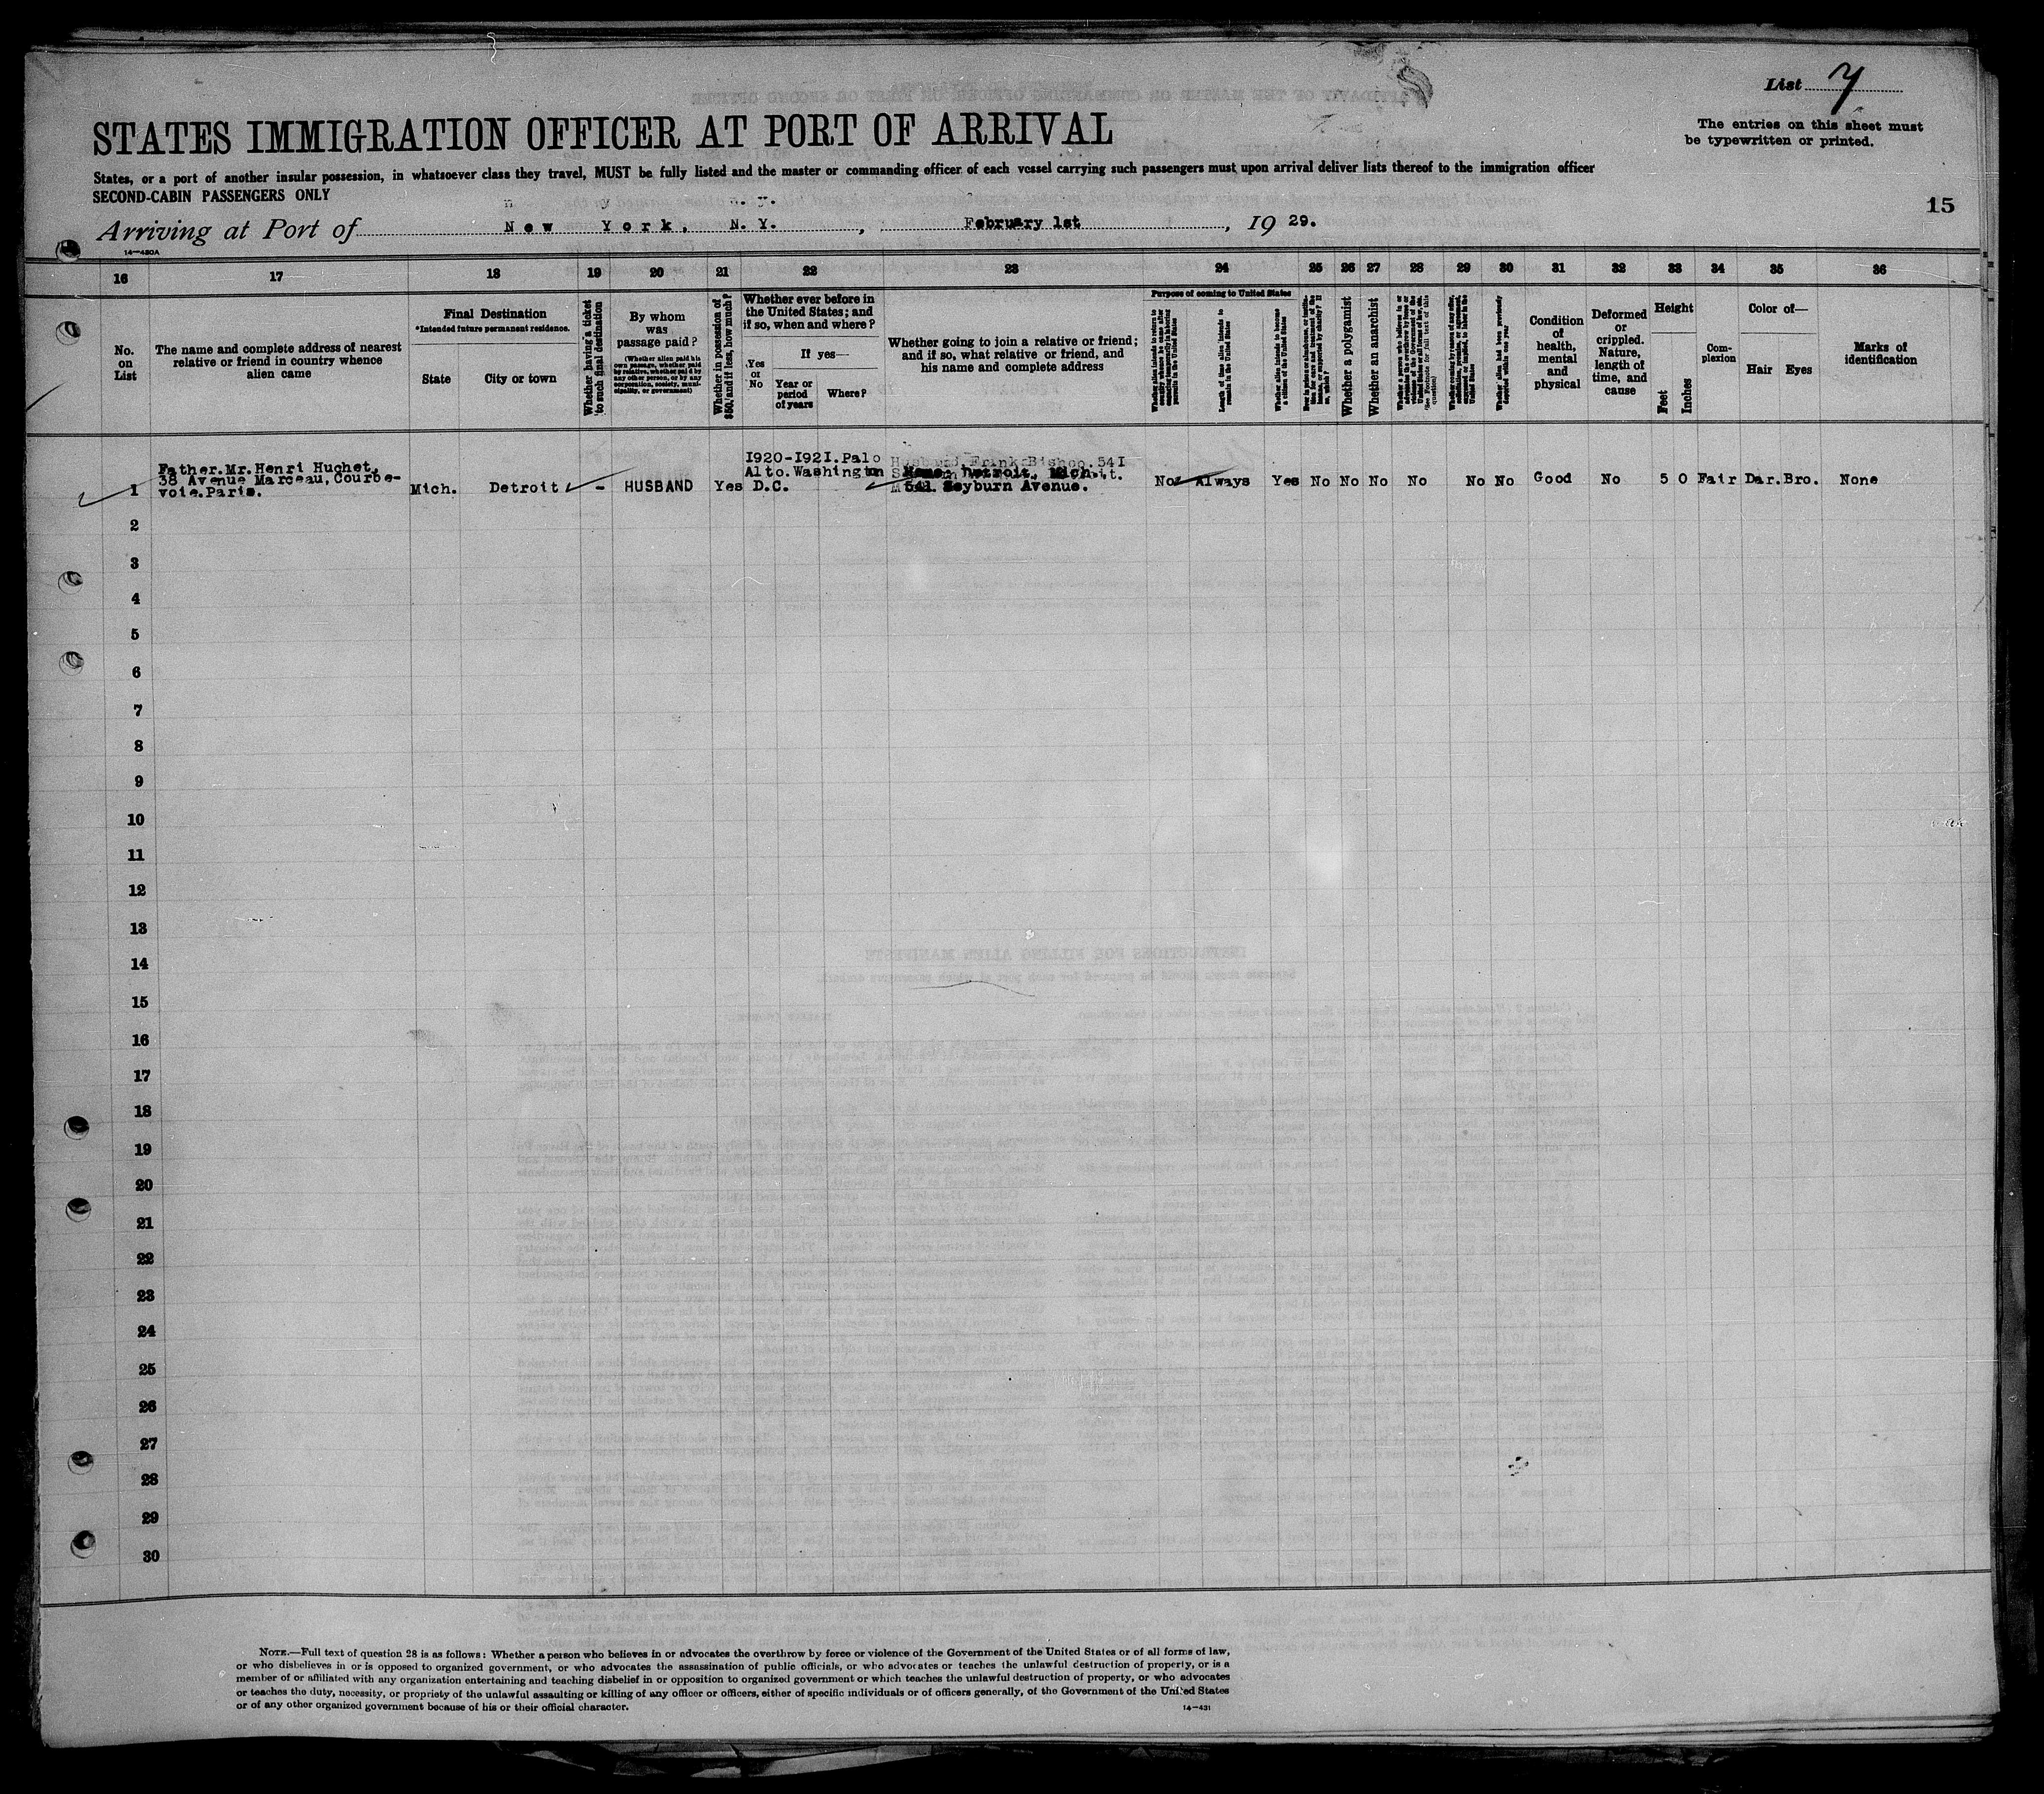 List 7
STATES IMMIGRATION OFFICER AT PORT OF ARRIVAL
The entries on this sheet must
be typewritten or printed.
States, or a port of another insular possession, in whatsoever class they travel, MUST be fully listed and the master or commanding officer of each vessel carrying such passengers must upon arrival deliver lists thereof to the immigration officer
SECOND-CABIN PASSENGERS ONLY
15
Arriving at Port of New York, N. Y. , February 1st , 19 29.
14—480A
16 17 18 19 20 21 22 23 24 25 26 27 28 29 30 31 32 33 34 35 36
No.
on
List
The name and complete address of nearest
relative or friend in country whence
alien came
Final Destination
*Intended future permanent residence.
State
City or town
Whether having a ticket
to such final destination
By whom
was
passage paid?
(Whether alien paid his
own passage, whether paid
by relative, whether paid by
any other person, or by any
corporation, society, muni-
cipality, or government)
Whether in possession of
$50, and if less, how much?
Whether ever before in
the United States; and
if so, when and where?
Yes
or
No
If yes—
Year or
period
of years
Where?
Whether going to join a relative or friend;
and if so, what relative or friend, and
his name and complete address
Purpose of coming to United States
Length of time alien intends to
remain in the United States
Whether alien intends to become
a citizen of the United States
Whether a polygamist
Whether an anarchist
(See footnote for full text of this
question)
Whether alien had been previously
deported within one year
Condition
of
health,
mental
and
physical
Deformed
or
crippled.
Nature,
length of
time, and
cause
Height
Feet
Inches
Com-
plexion
Color of—
Hair
Eyes
Marks of
identification
1
Father.Mr.Henri Huchet,
38 Avenue Marceau,Courbe-
voie.Paris.
Mich.
Detroit
-
HUSBAND
Yes
1920-1921.Palo
Alto.Washington
D.C.
Husband Frank Bishop.541
Detroit, Mich.,
541 Seyburn Avenue.
No Always Yes No No No No No No Good No 5 0 Fair Dar. Bro. None
2
3
4
5
6
7
8
9
10
11
12
13
14
15
16
17
18
19
20
21
22
23
24
25
26
27
28
29
30
NOTE.—Full text of question 28 is as follows: Whether a person who believes in or advocates the overthrow by force or violence of the Government of the United States or of all forms of law,
or who disbelieves in or is opposed to organized government, or who advocates the assassination of public officials, or who advocates or teaches the unlawful destruction of property, or is a
member of or affiliated with any organization entertaining and teaching disbelief in or opposition to organized government or which teaches the unlawful destruction of property, or who advocates
or teaches the duty, necessity, or propriety of the unlawful assaulting or killing of any officer or officers, either of specific individuals or of officers generally, of the Government of the United States
or of any other organized government because of his or their official character.
14—431